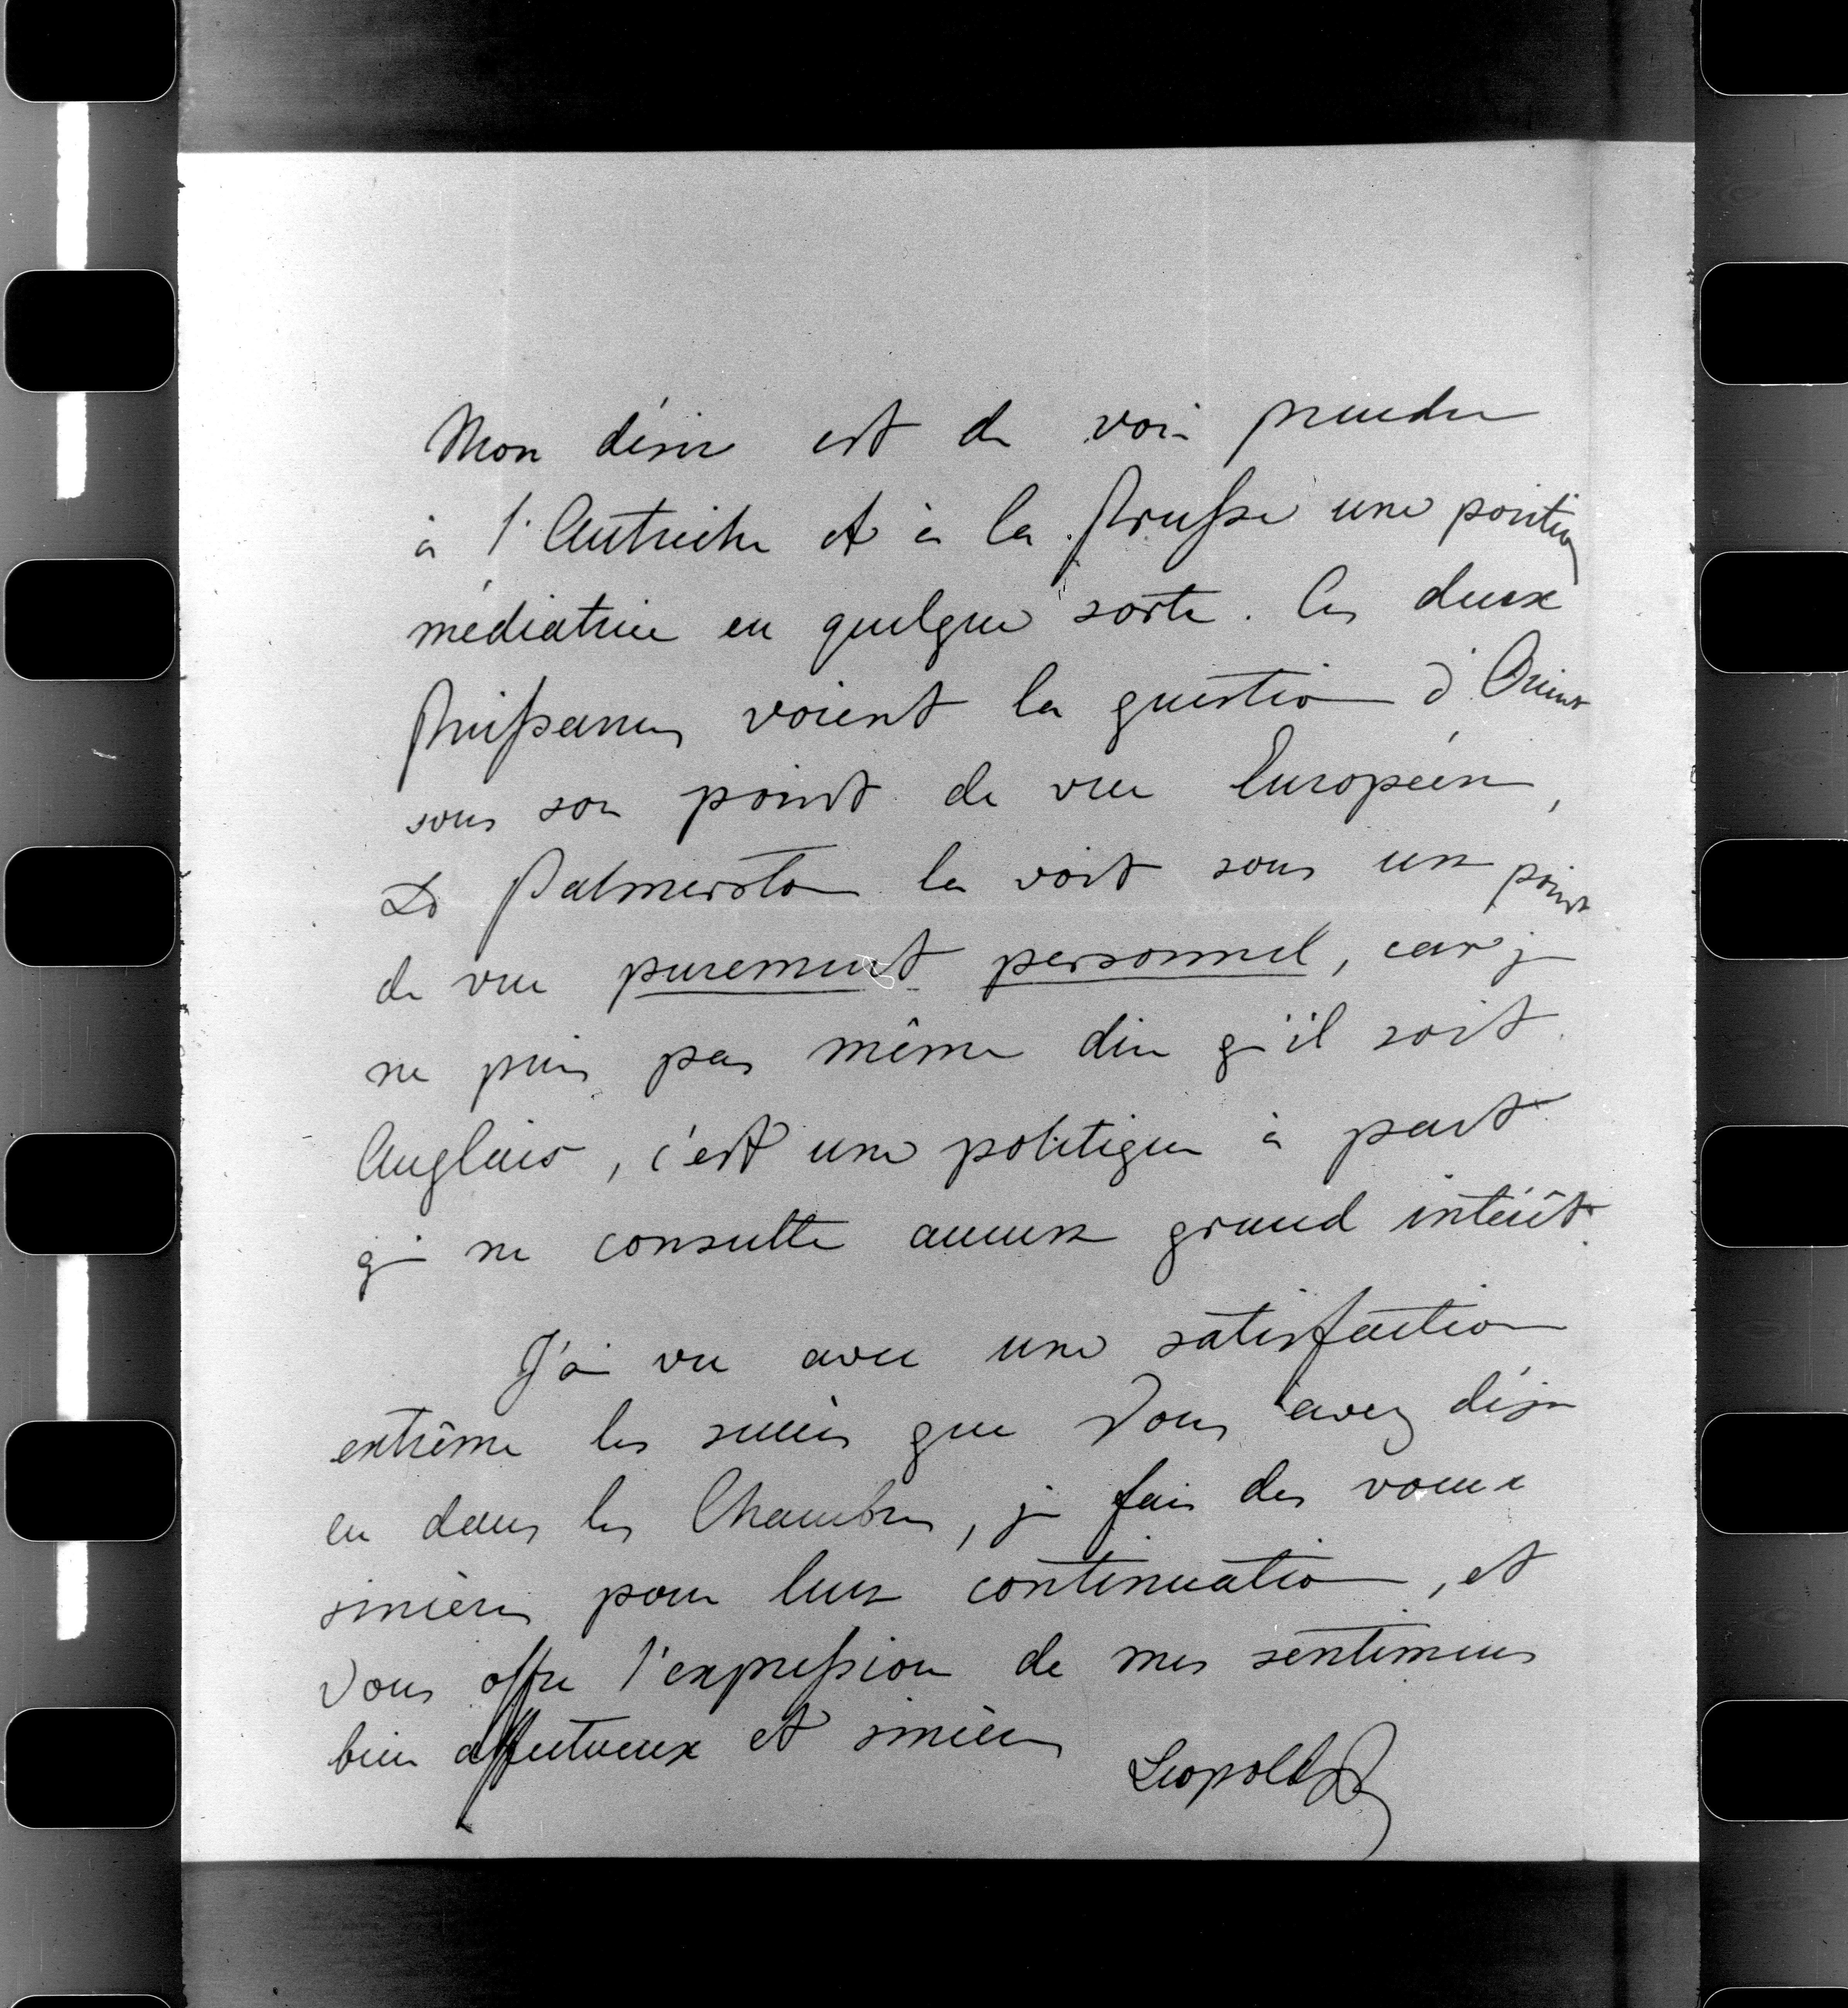 Mon désir est de voir prendre
à l'Autriche et à la Prusse une position
médiatrice en quelque sorte. Ces deux
Puissances voient la question d'Orient
sous son point de vue Européen,
Ld Palmerston la voit sous un point
de vue purement personnel, car je
ne puis pas même dire qu'il soit
Anglais, c'est une politique à part
qui ne consulte aucun grand intérêt.
J'ai vu avec une satisfaction
extrême les succès que Vous avez déjà
eu dans les Chambres, je fais des voeux
sincères pour leur continuation, et
Vous offre l'expression de mes sentimens
bien affectueux et sincères
Leopold